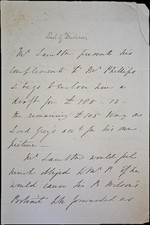 Earl of Durham
Mr Lambton presents his
compliments to Mr Phillips
& begs to enclose him a
draft for £ 108 - 15 -
the remaining £ 105 being on
Lord Grey's acct for his own
picture -
Mr Lambton would feel
much obliged to Mr P. if he
would cause Sir R. Wilson's
Portrait to be forwarded as